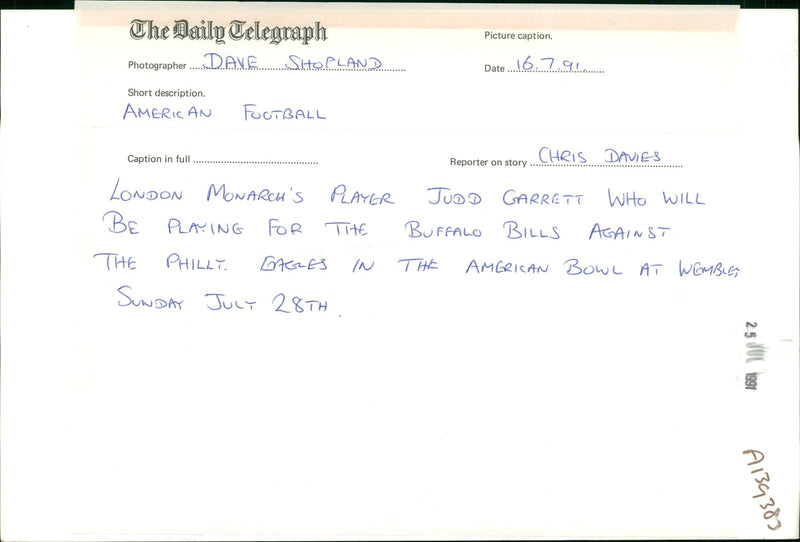 The Daily Telegraph
Picture caption.
Photographer DAVE SHOPLAND
Date 16.7.91.
Short description.
AMERICAN FOOTBALL
Caption in full
Reporter on story CHRIS DAVIES
LONDON MONARCH'S PLAYER JUDD GARRETT WHO WILL
BE PLAYING FOR THE BUFFALO BILLS AGAINST
THE PHILLY. EAGLES IN THE AMERICAN BOWL AT WEMBLEY
SUNDAY JULY 28TH.
25 JUL 1991
A139383